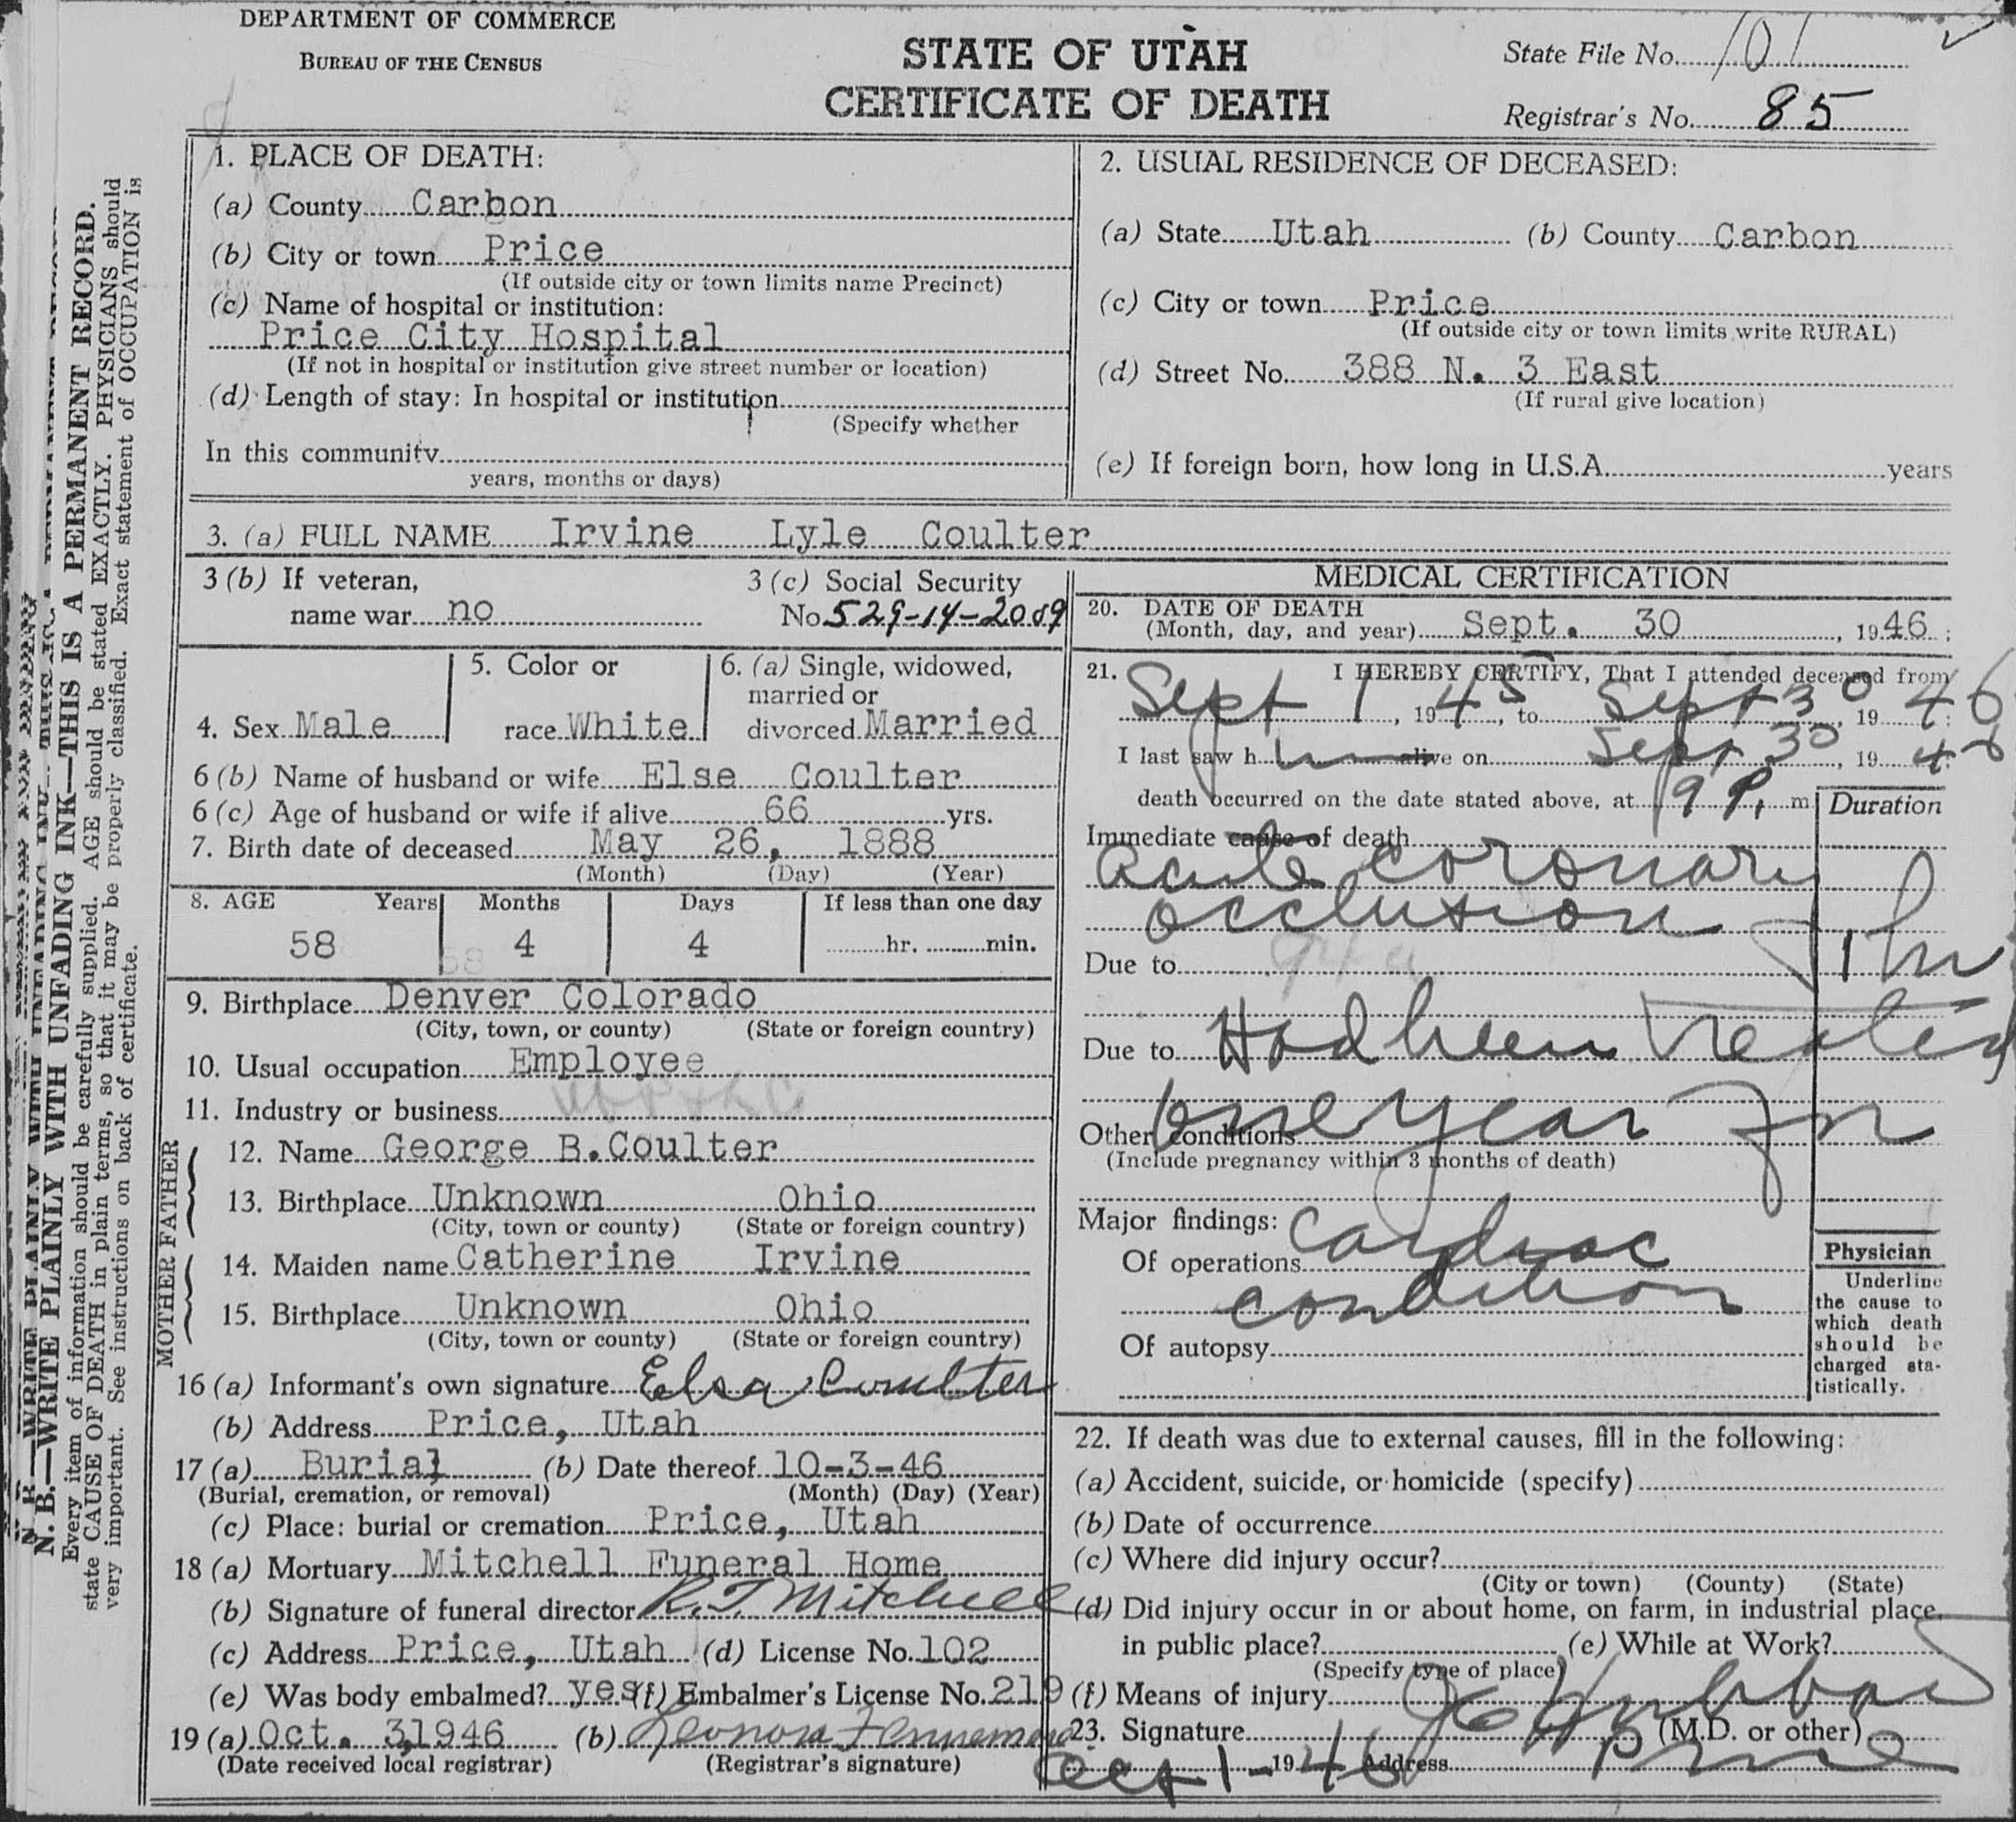 DEPARTMENT OF COMMERCE
BUREAU OF THE CENSUS
STATE OF UTAH
CERTIFICATE OF DEATH
State File No. 101
Registrar's No. 85
N. B.—WRITE PLAINLY WITH UNFADING INK—THIS IS A PERMANENT RECORD.
Every item of information should be carefully supplied. AGE should be stated EXACTLY. PHYSICIANS should
state CAUSE OF DEATH in plain terms, so that it may be properly classified. Exact statement of OCCUPATION is
very important. See instructions on back of certificate.
1. PLACE OF DEATH:
(a) County Carbon
(b) City or town Price
(If outside city or town limits name Precinct)
(c) Name of hospital or institution:
Price City Hospital
(If not in hospital or institution give street number or location)
(d) Length of stay: In hospital or institution
(Specify whether
In this community
years, months or days)
2. USUAL RESIDENCE OF DECEASED:
(a) State Utah (b) County Carbon
(c) City or town Price
(If outside city or town limits write RURAL)
(d) Street No. 388 N. 3 East
(If rural give location)
(e) If foreign born, how long in U.S.A. years
3. (a) FULL NAME Irvine Lyle Coulter
3 (b) If veteran,
name war no
3 (c) Social Security
No. 529-14-2009
4. Sex Male
5. Color or
race White
6. (a) Single, widowed,
married or
divorced Married
6 (b) Name of husband or wife Else Coulter
6 (c) Age of husband or wife if alive 66 yrs.
7. Birth date of deceased May 26, 1888
(Month) (Day) (Year)
8. AGE Years Months Days If less than one day
58 4 4 hr. min.
9. Birthplace Denver Colorado
(City, town, or county) (State or foreign country)
10. Usual occupation Employee
11. Industry or business
FATHER
12. Name George B. Coulter
13. Birthplace Unknown Ohio
(City, town or county) (State or foreign country)
MOTHER
14. Maiden name Catherine Irvine
15. Birthplace Unknown Ohio
(City, town or county) (State or foreign country)
16 (a) Informant's own signature Elsa Coulter
(b) Address Price, Utah
17 (a) Burial (b) Date thereof 10-3-46
(Burial, cremation, or removal) (Month) (Day) (Year)
(c) Place: burial or cremation Price, Utah
18 (a) Mortuary Mitchell Funeral Home
(b) Signature of funeral director R. J. Mitchell
(c) Address Price, Utah (d) License No. 102
(e) Was body embalmed? yes (f) Embalmer's License No. 219
19 (a) Oct. 3, 1946 (b) Leonora
(Date received local registrar) (Registrar's signature)
MEDICAL CERTIFICATION
20. DATE OF DEATH
(Month, day, and year) Sept. 30, 1946;
21. I HEREBY CERTIFY, That I attended deceased from
Sept 1, 1945, to Sept 30, 1946;
I last saw him alive on Sept 30, 1946
death occurred on the date stated above, at 9 P. m
Duration
Immediate cause of death
Acute coronary
occlusion 1 hr
Due to
Due to Had been treated
one year for
Other conditions
(Include pregnancy within 3 months of death)
Major findings: cardiac
Of operations
condition
Of autopsy
Physician
Underline
the cause to
which death
should be
charged sta-
tistically.
22. If death was due to external causes, fill in the following:
(a) Accident, suicide, or homicide (specify)
(b) Date of occurrence
(c) Where did injury occur?
(City or town) (County) (State)
(d) Did injury occur in or about home, on farm, in industrial place,
in public place? (e) While at Work?
(Specify type of place)
(f) Means of injury
23. Signature (M.D. or other)
Oct 1- 1946 Address Price